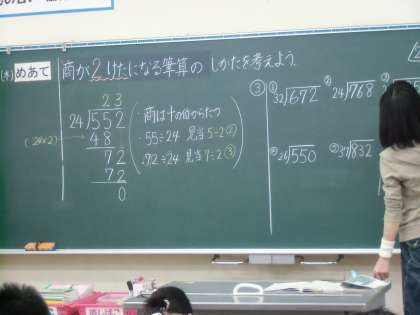 (水) めあて 商が2けたになる筆算のしかたを考えよう。
23
24)552
(24×2)→ 48
72
72
0
・商は十の位からたつ
・55÷24 見当5÷2 ②
・72÷24 見当7÷2 ③
③
① 32)672
② 24)768
550
832